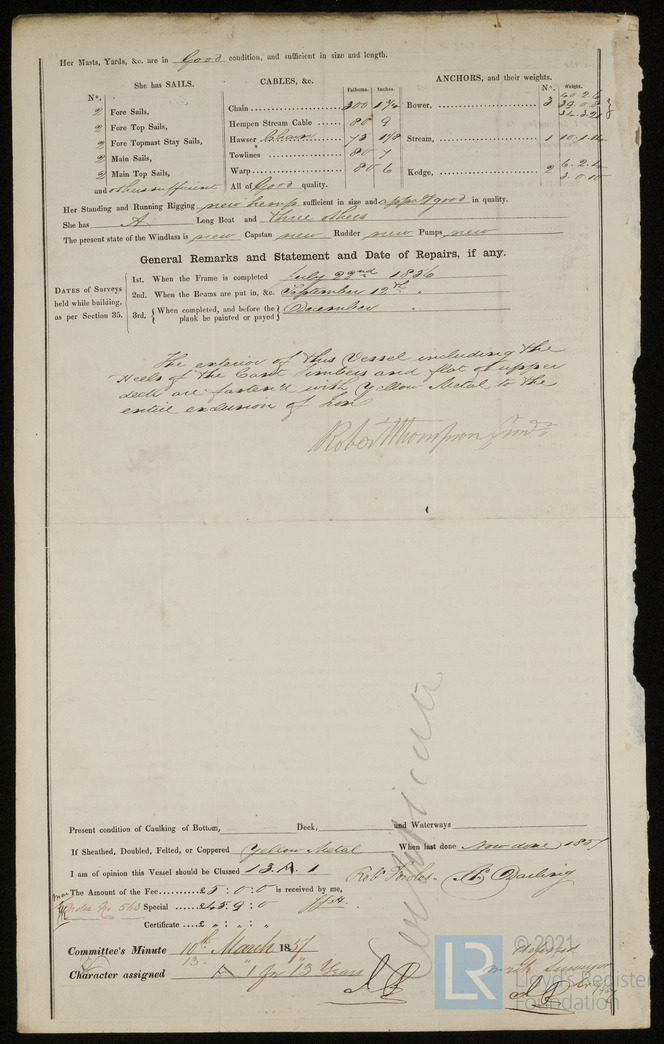 Her Masts, Yards, &c. are in Good condition, and sufficient in size and length.
She has SAILS.
N°.
2 Fore Sails,
2 Fore Top Sails,
2 Fore Topmast Stay Sails,
2 Main Sails,
2 Main Top Sails,
and others sufficient
CABLES, &c.
Fathoms. Inches.
Chain 300
Hempen Stream Cable 80 9
Hawser Chain 1 1/8
Towlines 80 7
Warp 80 6
All of Good quality.
ANCHORS, and their weights.
N°. Weight.
Bower, 3 40.2.6
Stream, 1
Kedge, 2
Her Standing and Running Rigging new hemp sufficient in size and good in quality.
She has A Long Boat and three others
The present state of the Windlass is new Capstan new Rudder new Pumps new
General Remarks and Statement and Date of Repairs, if any.
DATES of Surveys held while building, as per Section 35.
1st. When the Frame is completed July 22nd 1856
2nd. When the Beams are put in, &c. September 12th "
3rd. When completed, and before the plank be painted or payed December "
The exterior of this Vessel including the
Heels of the Cant Timbers and flat of upper
deck are fasten'd with Yellow Metal to the
entire exclusion of Iron
Robert Thompson
Present condition of Caulking of Bottom, Deck, and Waterways
If Sheathed, Doubled, Felted, or Coppered Yellow Metal When last done Now done, 1857
I am of opinion this Vessel should be Classed 13. A. 1
The Amount of the Fee £5 : 0 : 0 is received by me,
563 Special : 9 : 0
Certificate
Committee's Minute 10th March 1857
Character assigned 13 A 1 for 13 Years
© 2021
Lloyd's Register
Foundation
LR